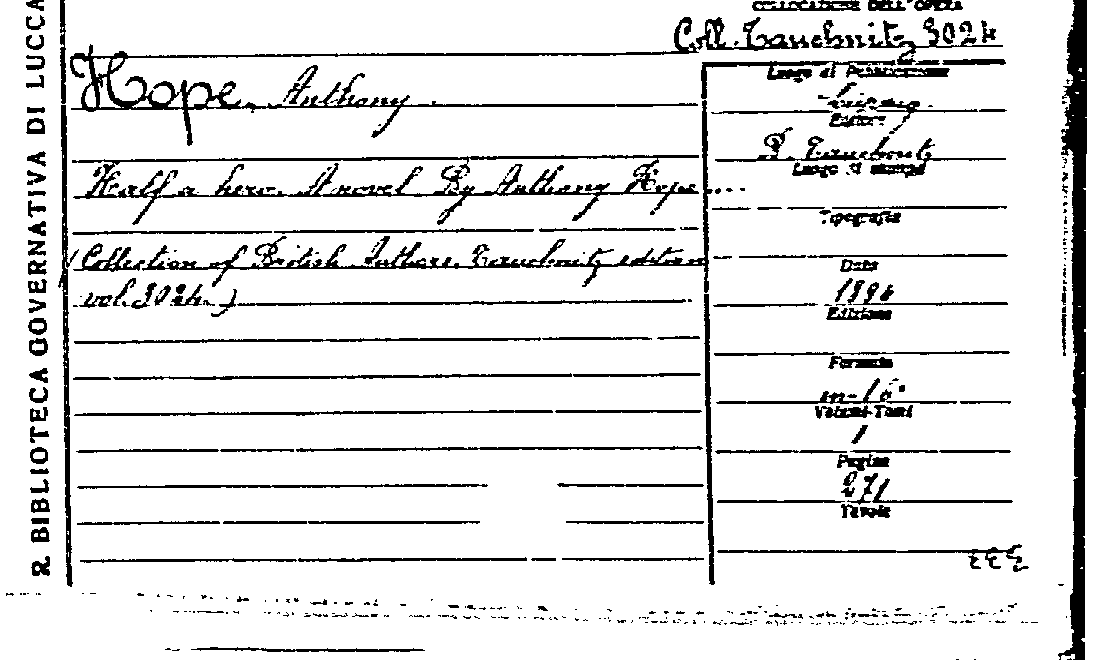 R. BIBLIOTECA GOVERNATIVA DI LUCCA
COLLOCAZIONE DELL'OPERA
Coll. Tauchnitz 3024
Hope, Anthony.
Half a hero. A novel By Anthony Hope....
(Collection of British Authors. Tauchnitz edition
vol. 3024.)
Luogo di Pubblicazione
Leipzig.
Editore
B. Tauchnitz
Luogo di stampa
Tipografia
Data
Edizione
Formato
in-16°
Volumi-Tomi
1
Pagine
271
Tavole